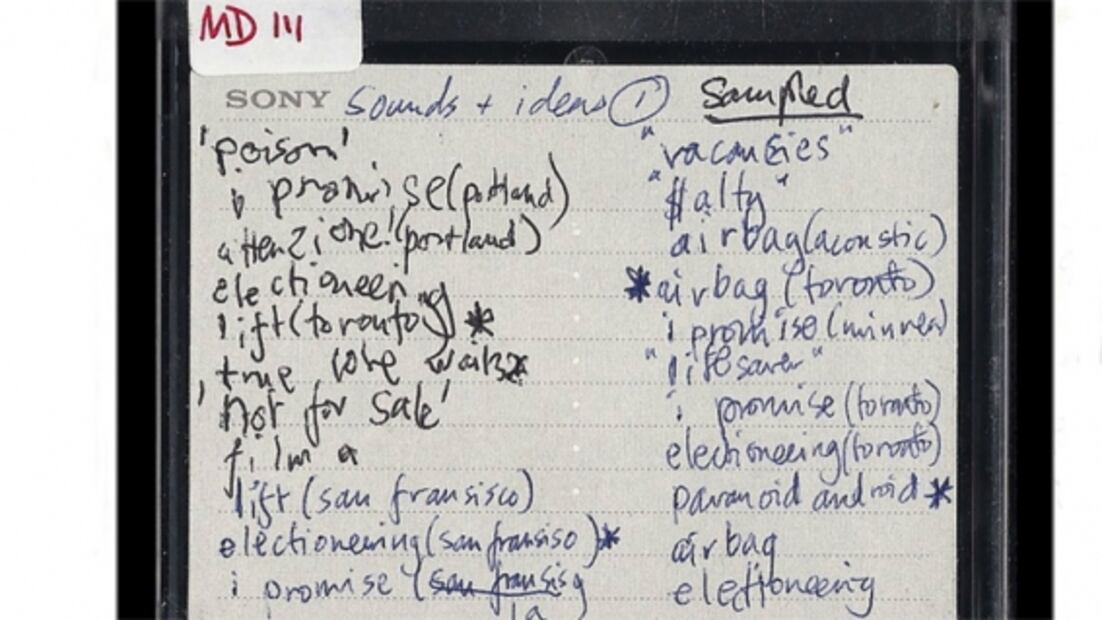 MD 111
SONY sounds + ideas 1 sampled
'poison'
i promise (portland)
attenzione! (portland)
electioneering
lift (toronto) *
true love waits *
'not for sale'
lift (san fransisco)
electioneering (san fransiso) *
i promise (san fransis
la
"vacancies"
airbag (acoustic)
*airbag (toronto)
i promise (minnea)
"lifesaver"
i promise (toronto)
electioneering (toronto)
paranoid android *
airbag
electioneering